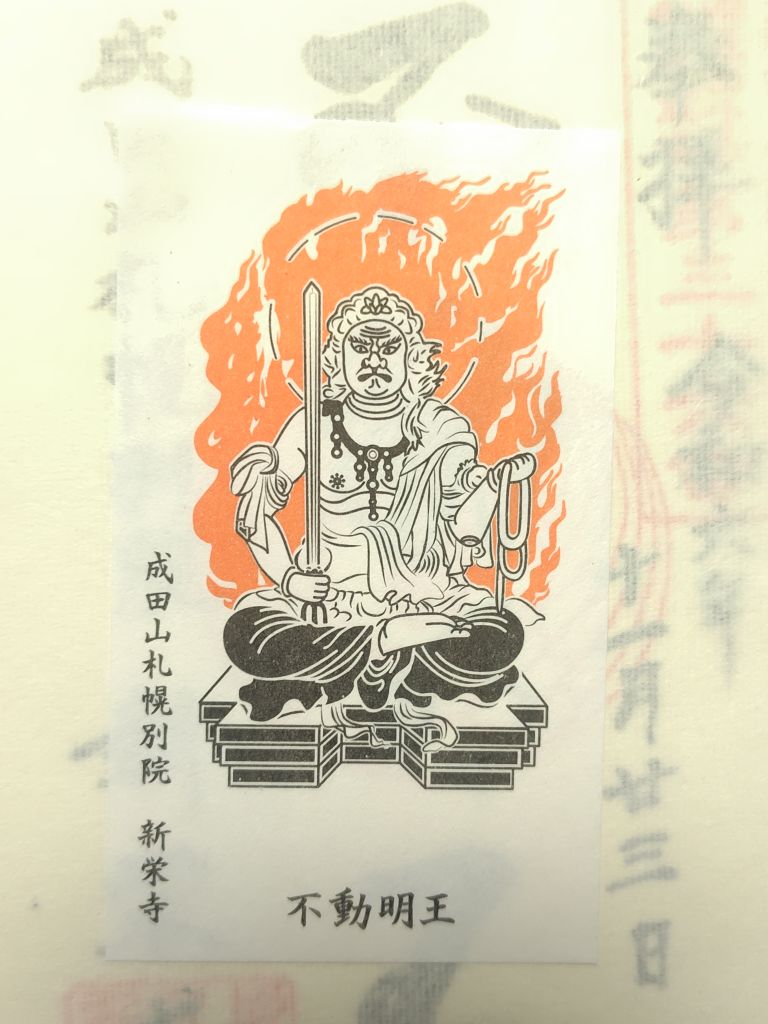 奉拝
令和六年
十一月廿三日
不
成田山札幌別院 新栄寺
不動明王